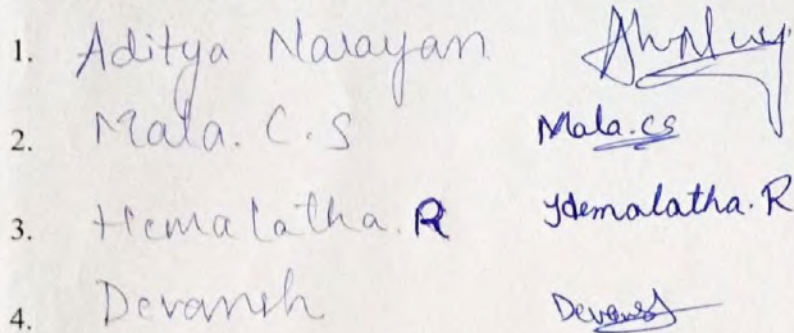 1. Aditya Narayan
2. Mala. C. S Mala.cs
3. Hemalatha. R Hemalatha. R
4. Devansh Devansh